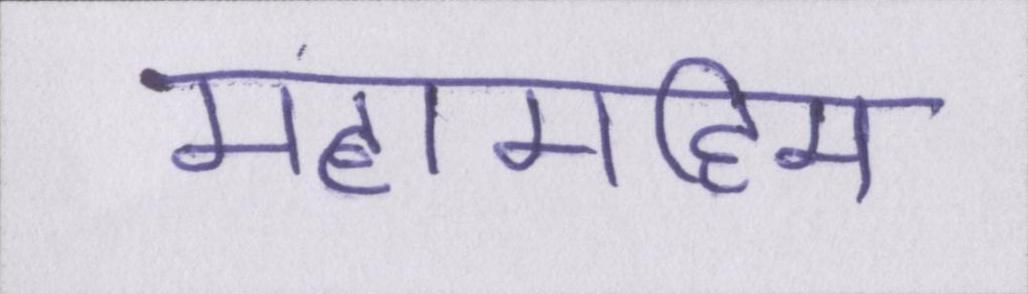 महामहिम